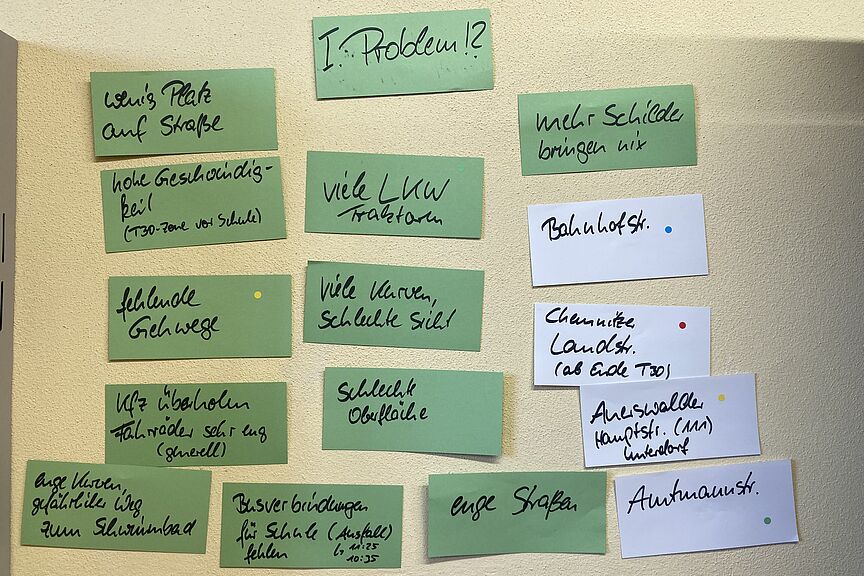 I. Problem!?
wenig Platz
auf Straße
hohe Geschwindig-
keit
(T30-Zone vor Schule)
fehlende
Gehwege
Kfz überholen
Fahrräder sehr eng
(generell)
enge Kurven,
gefährlicher Weg
zum Schwimmbad
viele LKW
Traktoren
viele Kurven,
schlechte Sicht
schlechte
Oberfläche
Busverbindungen
für Schule (Ausfall)
fehlen ↳ 11:25
10:35
mehr Schilder
bringen nix
Bahnhofstr.
Chemnitzer
Landstr.
(ab Ende T30)
Auerswalder
Hauptstr. (111)
Unterdorf
enge Straßen
Amtmannstr.